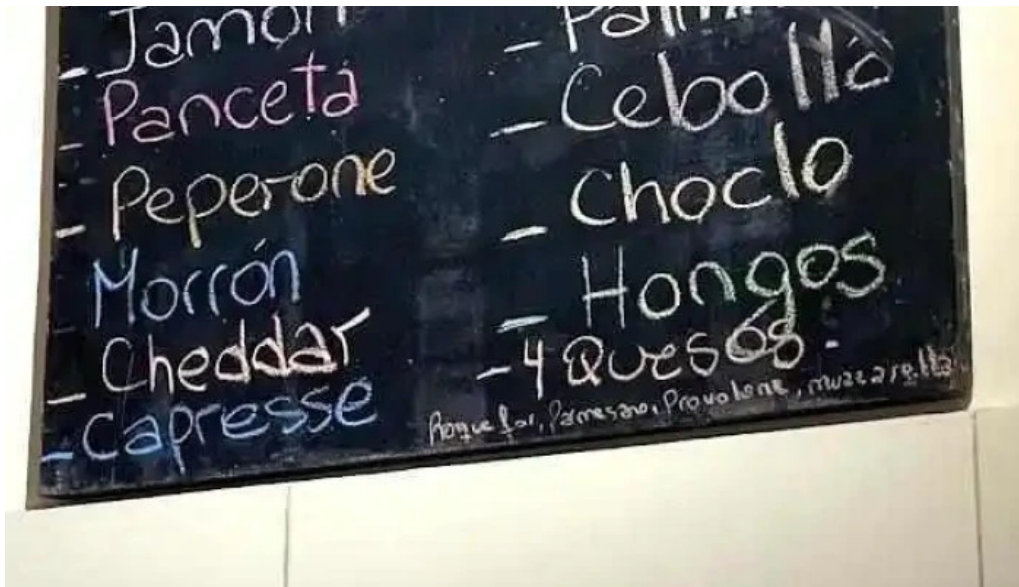 - Jamón
- Panceta
- Peperone
- Morrón
- Cheddar
- Capresse
- Cebolla
- Choclo
- Hongos
- 4 Quesos:
Roquefor, Parmesano, Provolone, muzzarella